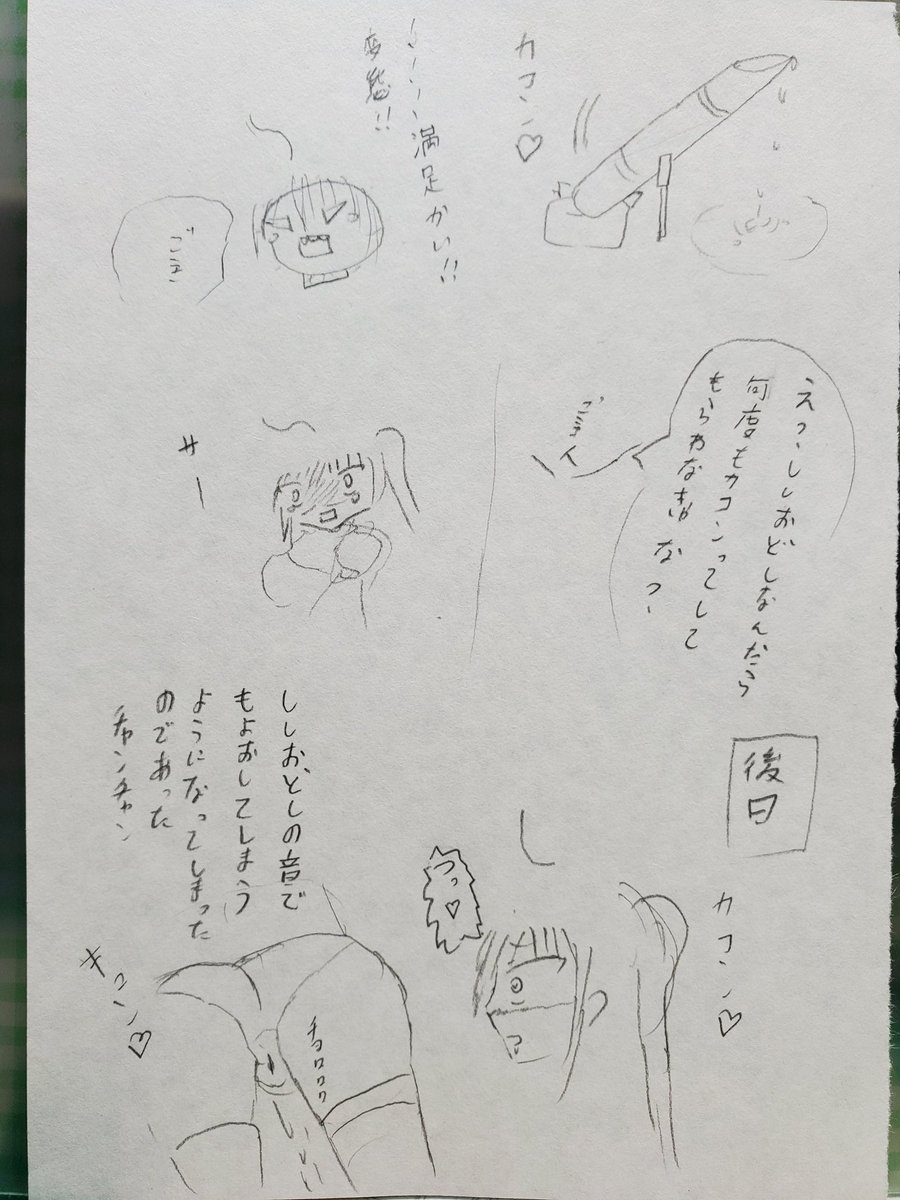 カコン♡
満足かい!!
変態!!
ごえ
えっ、ししおどしなんだら
何度もカコンってして
もらわな割なっ、
サー
後日
カコン♡
つっ♡
ししおどしの音で
もよおしてしまう
ようになってしまった
のであった
チャンチャン
キュン♡
チョロロロ